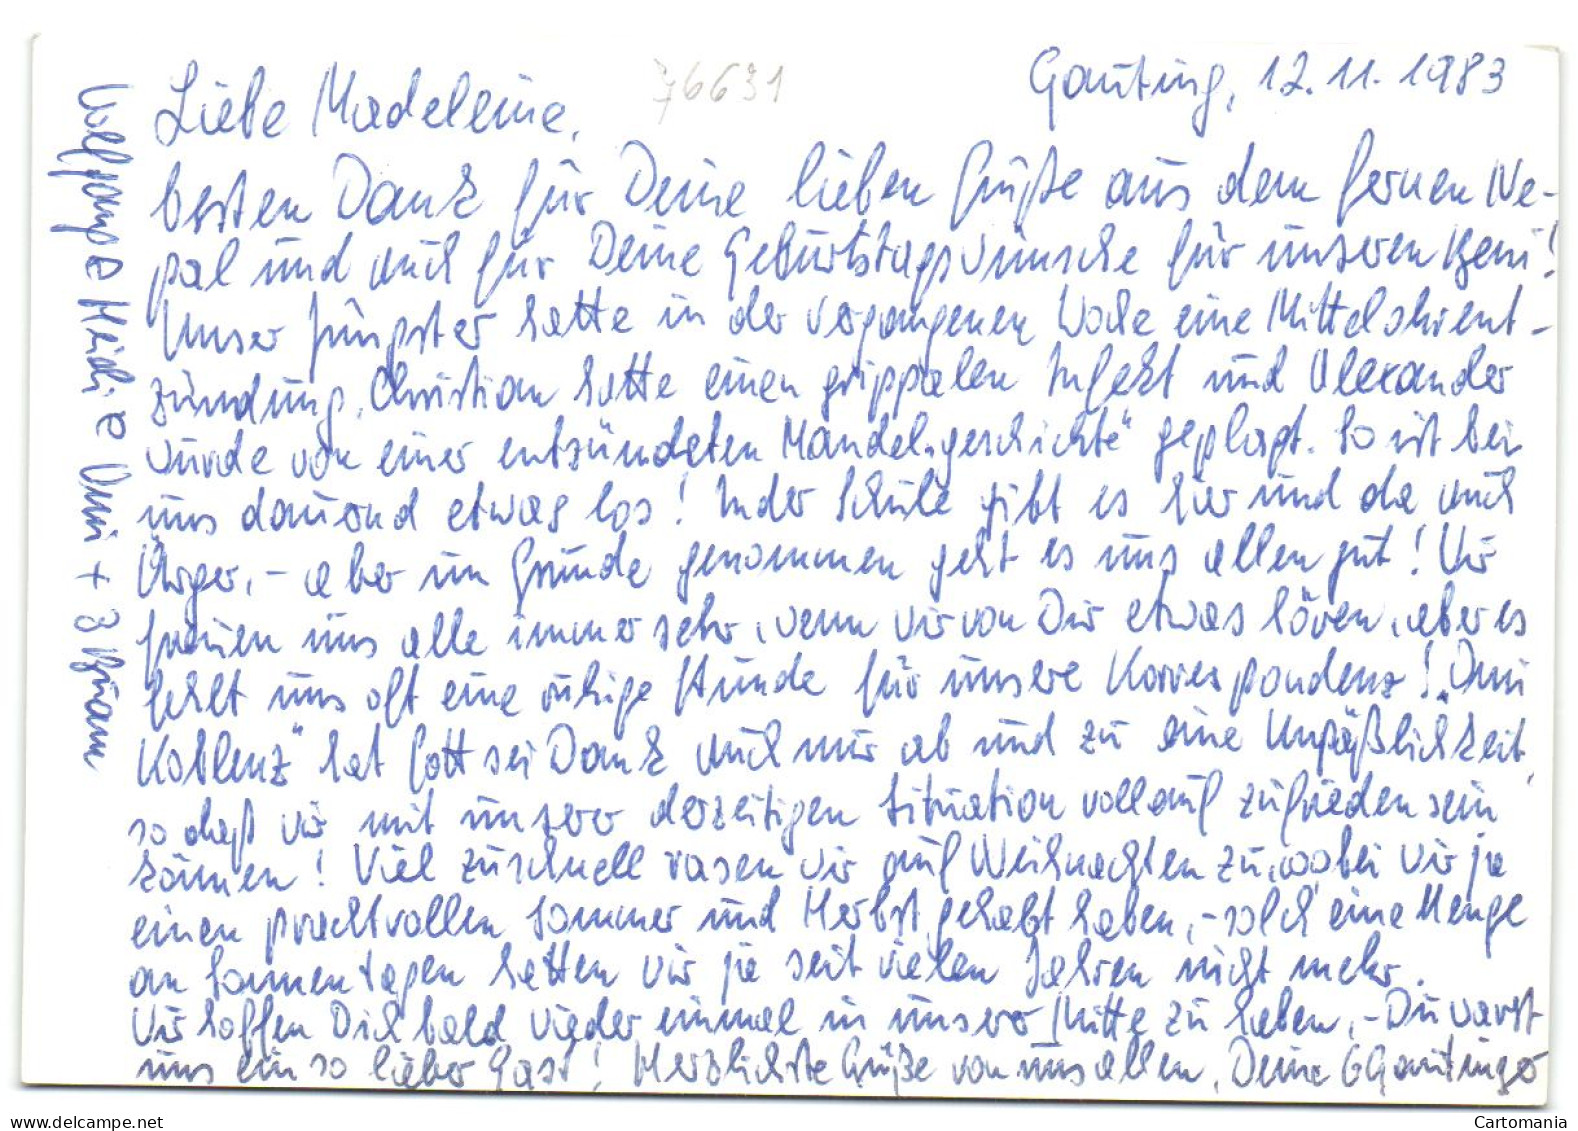 76631
Gauting, 12.11.1983
Liebe Madeleine,
besten Dank für Deine lieben Grüße aus dem fernen Ne-
pal und auch für Deine Geburtstagswünsche für unseren Beni!
Unser Jüngster hatte in der vergangenen Woche eine Mittelohrent-
zündung, Christian hatte einen grippalen Infekt und Alexander
wurde von einer entzündeten Mandel„geschichte" geplagt. So ist bei
uns dauernd etwas los! In der Schule gibt es hier und da auch
Ärger, - aber im Grunde genommen geht es uns allen gut! Wir
freuen uns alle immer sehr, wenn wir von Dir etwas hören, aber es
fehlt uns oft eine ruhige Stunde für unsere Korrespondenz! „Omi
Koblenz" hat Gott sei Dank auch nur ab und zu eine Unpäßlichkeit,
so daß wir mit unserer derzeitigen Situation vollauf zufrieden sein
können! Viel zu schnell rasen wir auf Weihnachten zu, wobei wir ja
einen prachtvollen Sommer und Herbst gehabt haben, - solch eine Menge
an Sonnentagen hatten wir ja seit vielen Jahren nicht mehr.
Wir hoffen Dich bald wieder einmal in unserer Mitte zu haben, - Du warst
uns ein so lieber Gast! Herzlichste Grüße von uns allen, Deine 6 Gautinger
Wolfgang & Heidi & Omi + 3 Buam
Cartomania